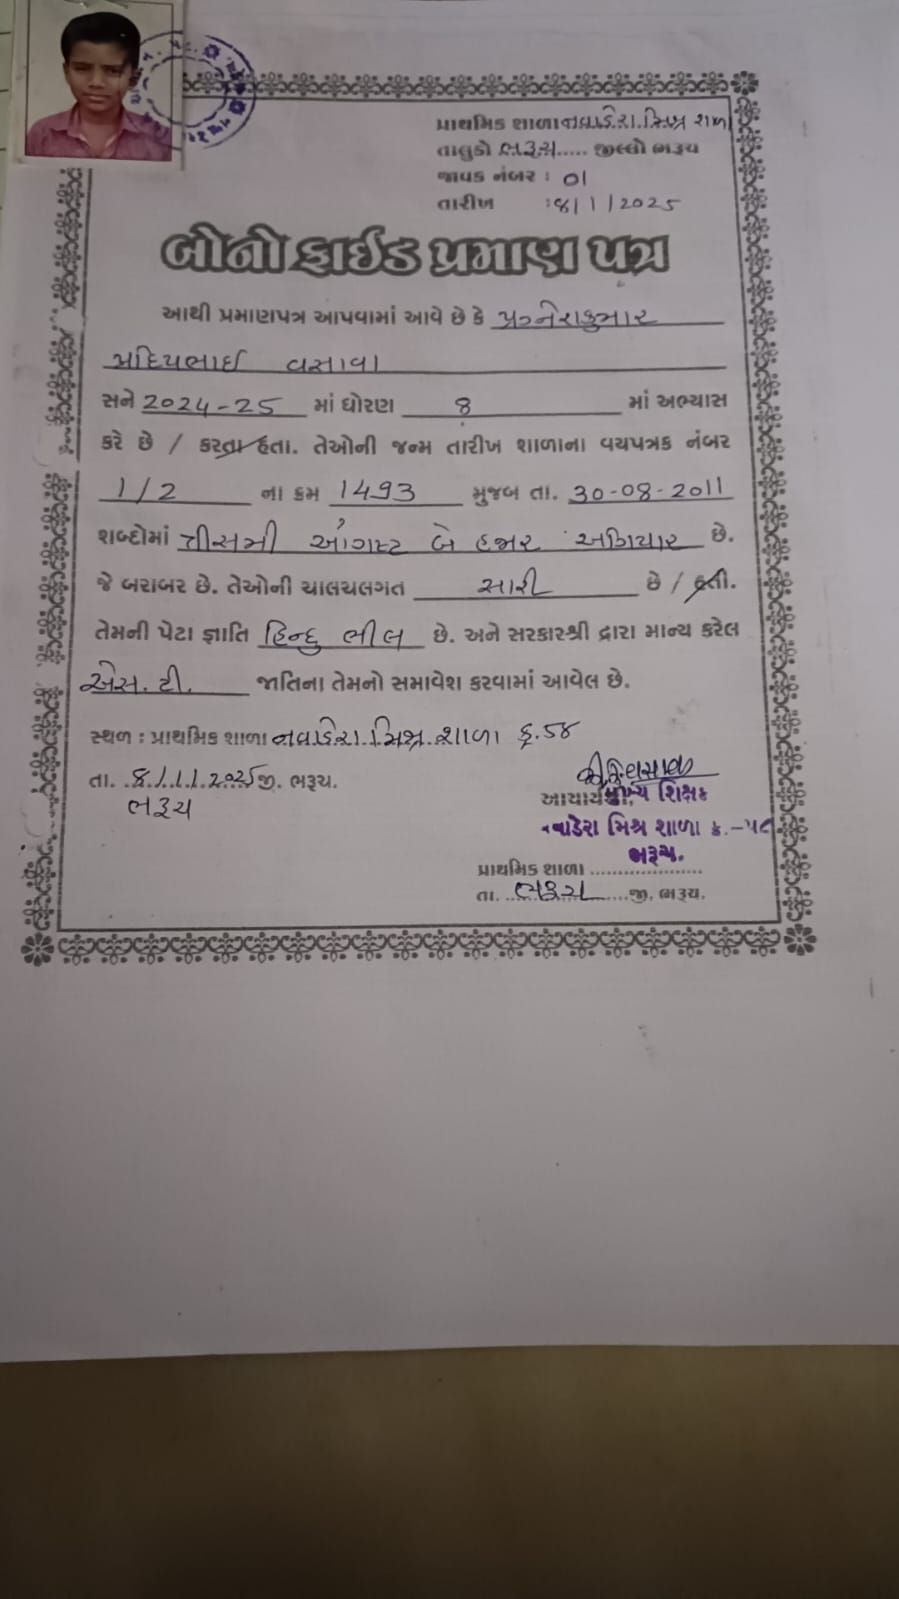 પ્રાથમિક શાળા નવાડેરા મિશ્ર શાળા
તાલુકો ભરૂચ..... જીલ્લો ભરૂચ
જાવક નંબર : 01
તારીખ :8/1/2025
બોનો ફાઈડ પ્રમાણ પત્ર
આથી પ્રમાણપત્ર આપવામાં આવે છે કે
વસાવા
સને 2024-25 માં ધોરણ 8 માં અભ્યાસ
કરે છે / કરતા હતા. તેઓની જન્મ તારીખ શાળાના વયપત્રક નંબર
1/2 ના ક્રમ 1493 મુજબ તા. 30-08-2011
શબ્દોમાં ત્રીસમી ઓગષ્ટ બે હજાર અગિયાર છે.
જે બરાબર છે. તેઓની ચાલચલગત સારી છે / હતી.
તેમની પેટા જ્ઞાતિ હિન્દુ ભીલ છે. અને સરકારશ્રી દ્વારા માન્ય કરેલ
એસ. ટી. જાતિના તેમનો સમાવેશ કરવામાં આવેલ છે.
સ્થળ : પ્રાથમિક શાળા નવાડેરા મિશ્ર શાળા
તા. 8/1/2025 જી. ભરૂચ.
ભરૂચ
મુખ્ય શિક્ષક
નવાડેરા મિશ્ર શાળા ક્ર.-
ભરૂચ.
પ્રાથમિક શાળા ....................
તા. ભરૂચ જી. ભરૂચ.